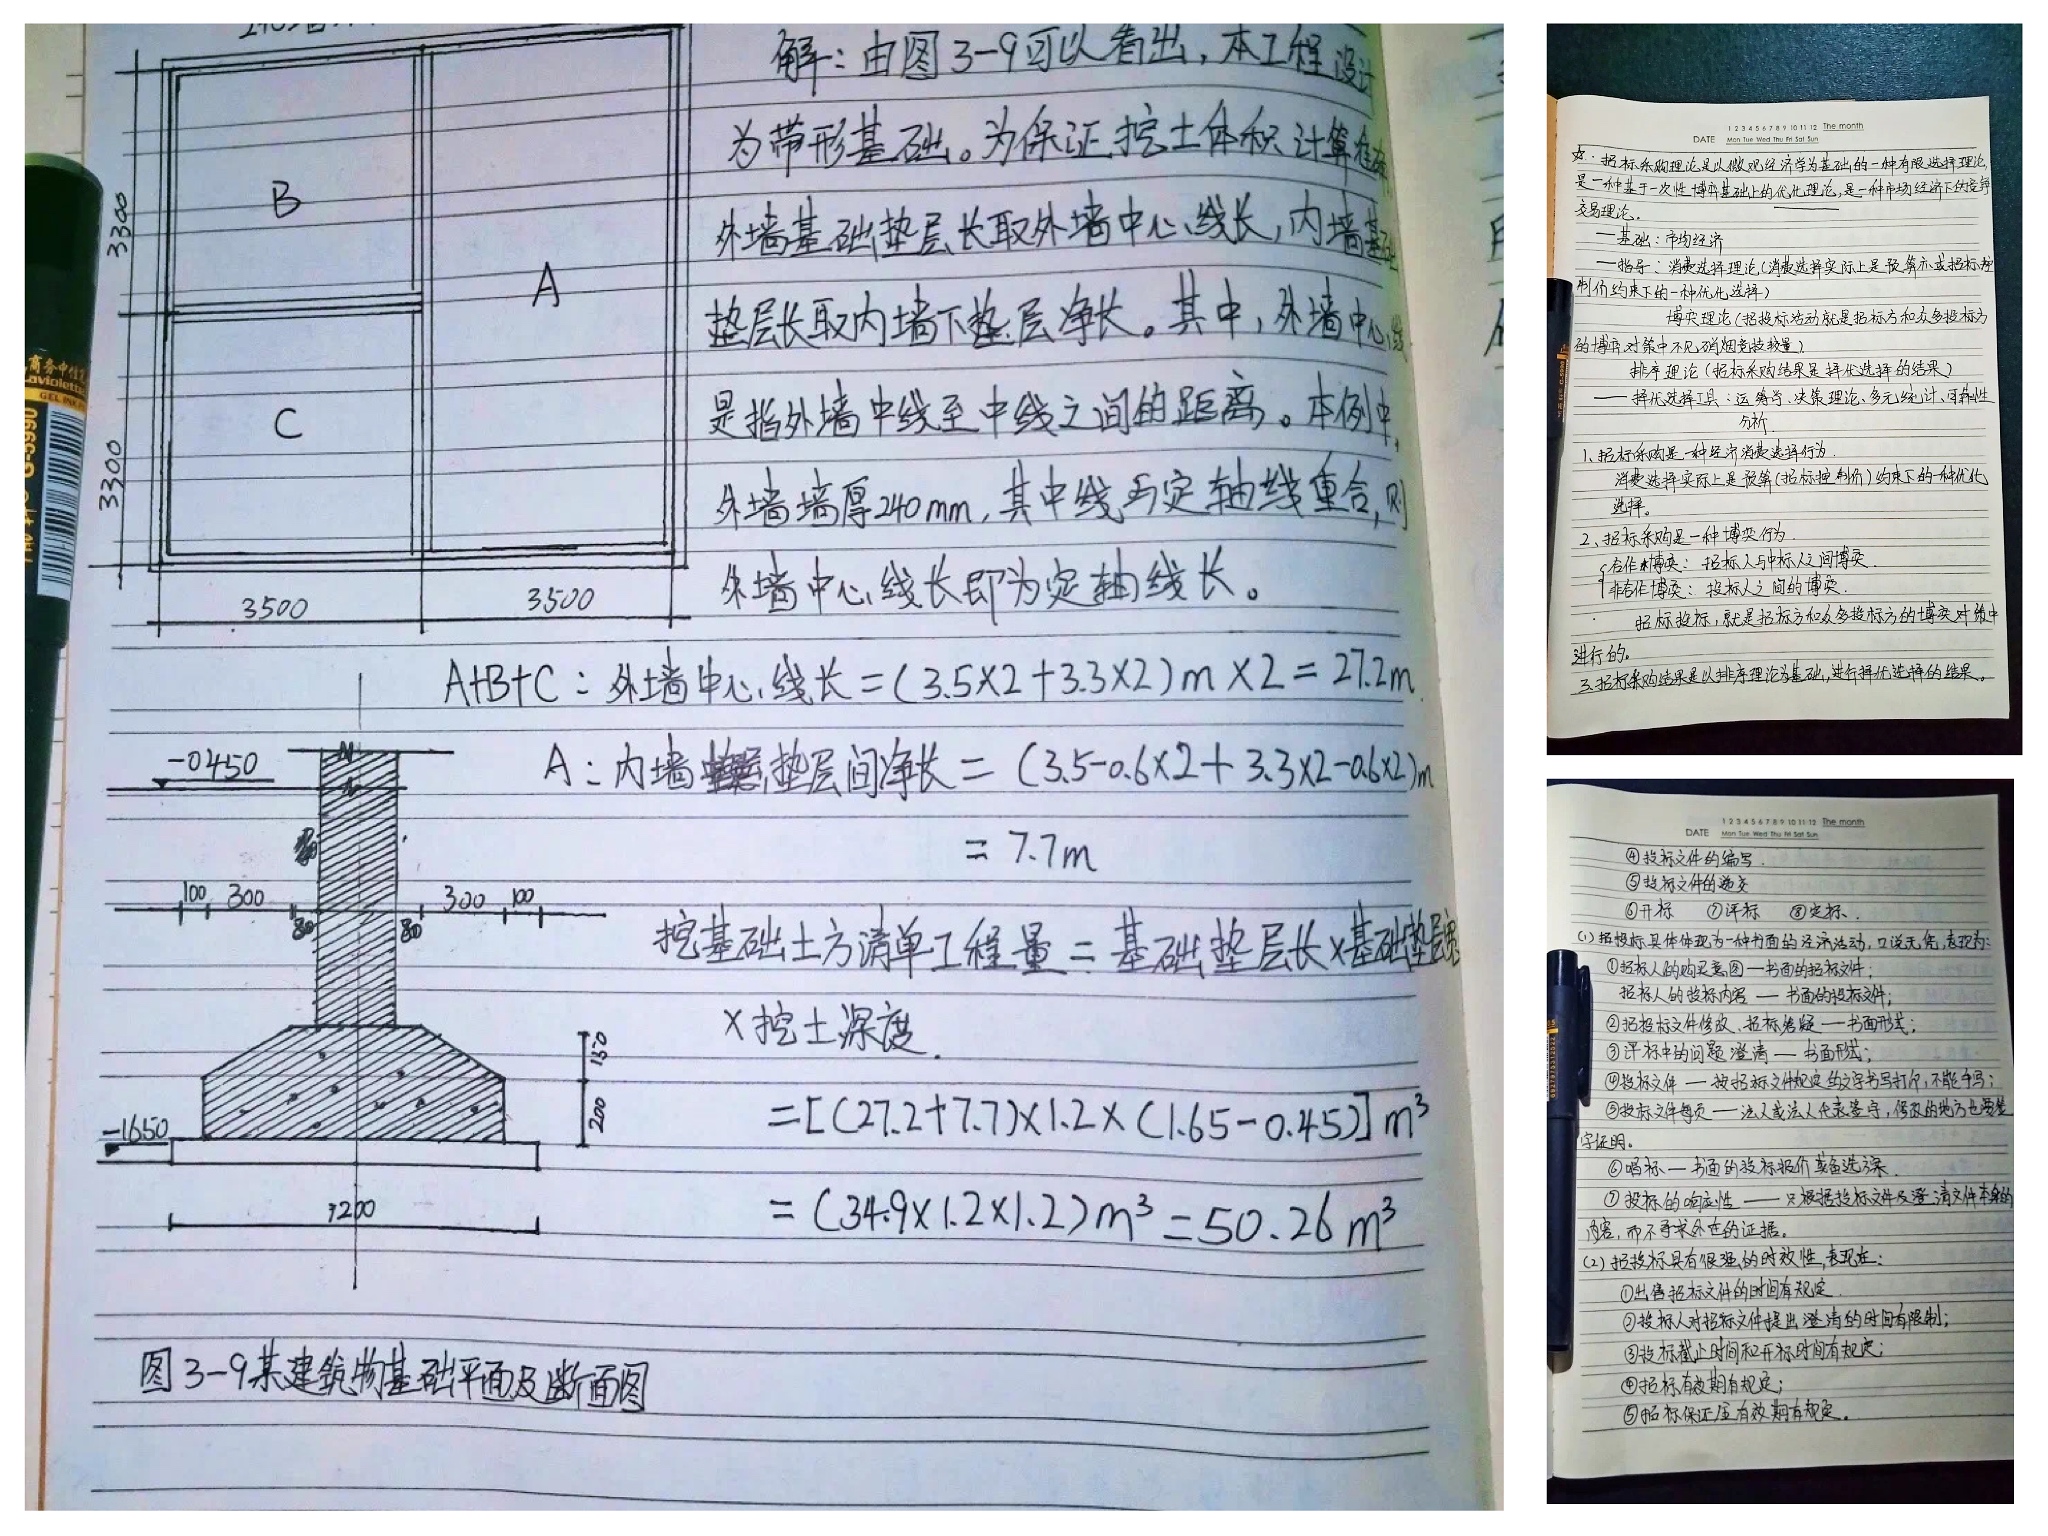 B
A
C
3300
3300
3500
3500
解：由图3-9可以看出，本工程设计
为带形基础。为保证挖土体积计算准确，
外墙基础垫层长取外墙中心线长，内墙基础
垫层长取内墙下垫层净长。其中，外墙中心线
是指外墙中线至中线之间的距离。本例中，
外墙墙厚240mm，其中线与定轴线重合，则
外墙中心线长即为定轴线长。
A+B+C：外墙中心线长=(3.5×2+3.3×2)m×2=27.2m.
A：内墙垫层间净长=(3.5-0.6×2+3.3×2-0.6×2)m
=7.7m
挖基础土方清单工程量=基础垫层长×基础垫层宽
×挖土深度.
=[(27.2+7.7)×1.2×(1.65-0.45)]m³
=(34.9×1.2×1.2)m³=50.26m³
-0450
100 300 300 100
80 80
150
200
-1650
1200
图3-9某建筑物基础平面及断面图
商务中性笔
GEL INK
DATE 1 2 3 4 5 6 7 8 9 10 11 12 The month
Mon Tue Wed Thu Fri Sat Sun
招标采购理论是以微观经济学为基础的一种有限选择理论，
是一种基于一次性博弈基础上的优化理论，是一种市场经济下的竞争
交易理论。
—基础：市场经济
—指导：消费选择理论(消费选择实际上是预算亦或招标控
制价约束下的一种优化选择)
博弈理论(招投标活动就是招标方和众多投标方
的博弈对策中不见硝烟竞技较量)
排序理论(招标采购结果是择优选择的结果)
—择优选择工具：运筹学、决策理论、多元统计、可靠性
分析.
1、招标采购是一种经济消费选择行为.
消费选择实际上是预算(招标控制价)约束下的一种优化
选择。
2、招标采购是一种博弈行为.
合作博弈：招标人与中标人之间博弈.
非合作博弈：投标人之间的博弈.
招标投标，就是招标方和众多投标方的博弈对策中
进行的。
3.招标采购结果是以排序理论为基础，进行择优选择的结果。
DATE 1 2 3 4 5 6 7 8 9 10 11 12 The month
Mon Tue Wed Thu Fri Sat Sun
④投标文件的编写.
⑤投标文件的递交
⑥开标 ⑦评标 ⑧定标.
(1)招投标具体体现为一种书面的经济活动，口说无凭，表现为：
①招标人的购买意图—书面的招标文件；
招标人的投标内容—书面的投标文件；
②招投标文件修改、招标答疑—书面形式；
③评标中的问题澄清—书面形式；
④投标文件—按招标文件规定的文字书写打印，不能手写；
⑤投标文件每页—法人或法人代表签字，修改的地方也要签
字证明。
⑥唱标—书面的投标报价或备选方案.
⑦投标的响应性—只根据投标文件及澄清文件本身的
内容，而不寻求外在的证据。
(2)招投标具有很强的时效性，表现在：
①出售招标文件的时间有规定.
②投标人对招标文件提出澄清的时间有限制；
③投标截止时间和开标时间有规定；
④招标有效期有规定；
⑤招标保证金有效期有规定。